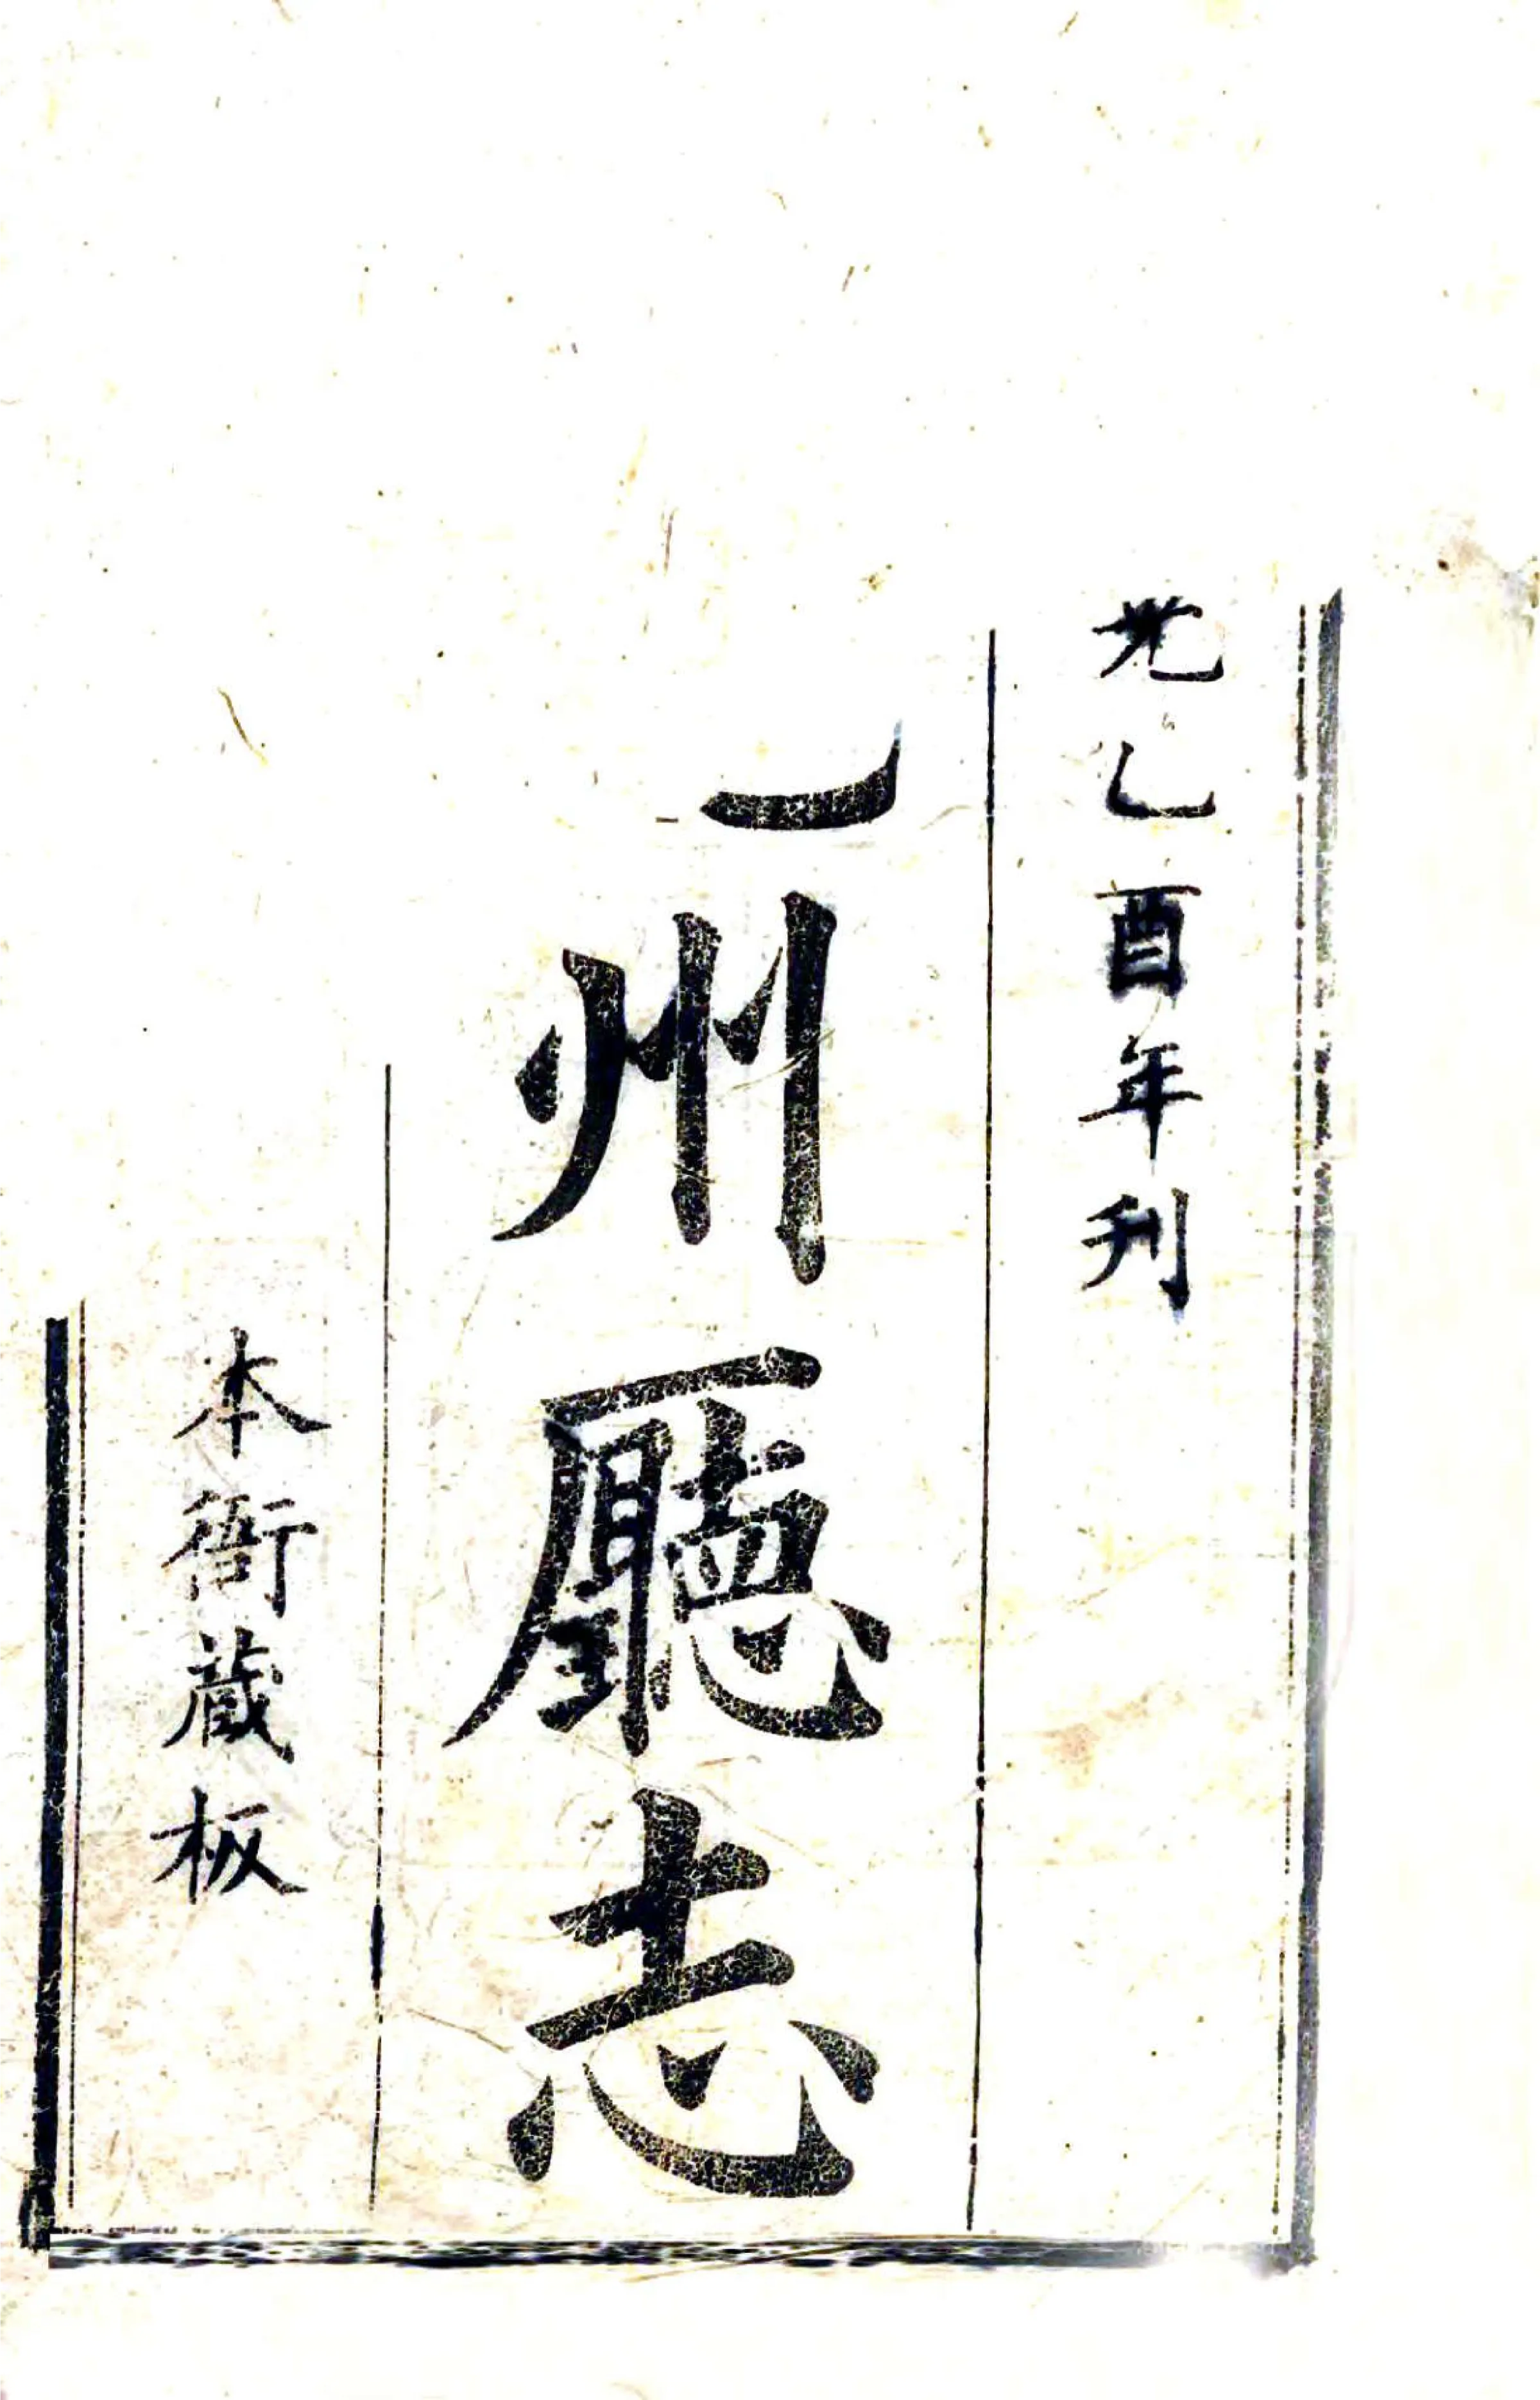 光乙酉年刋
州廳志
本衙藏板